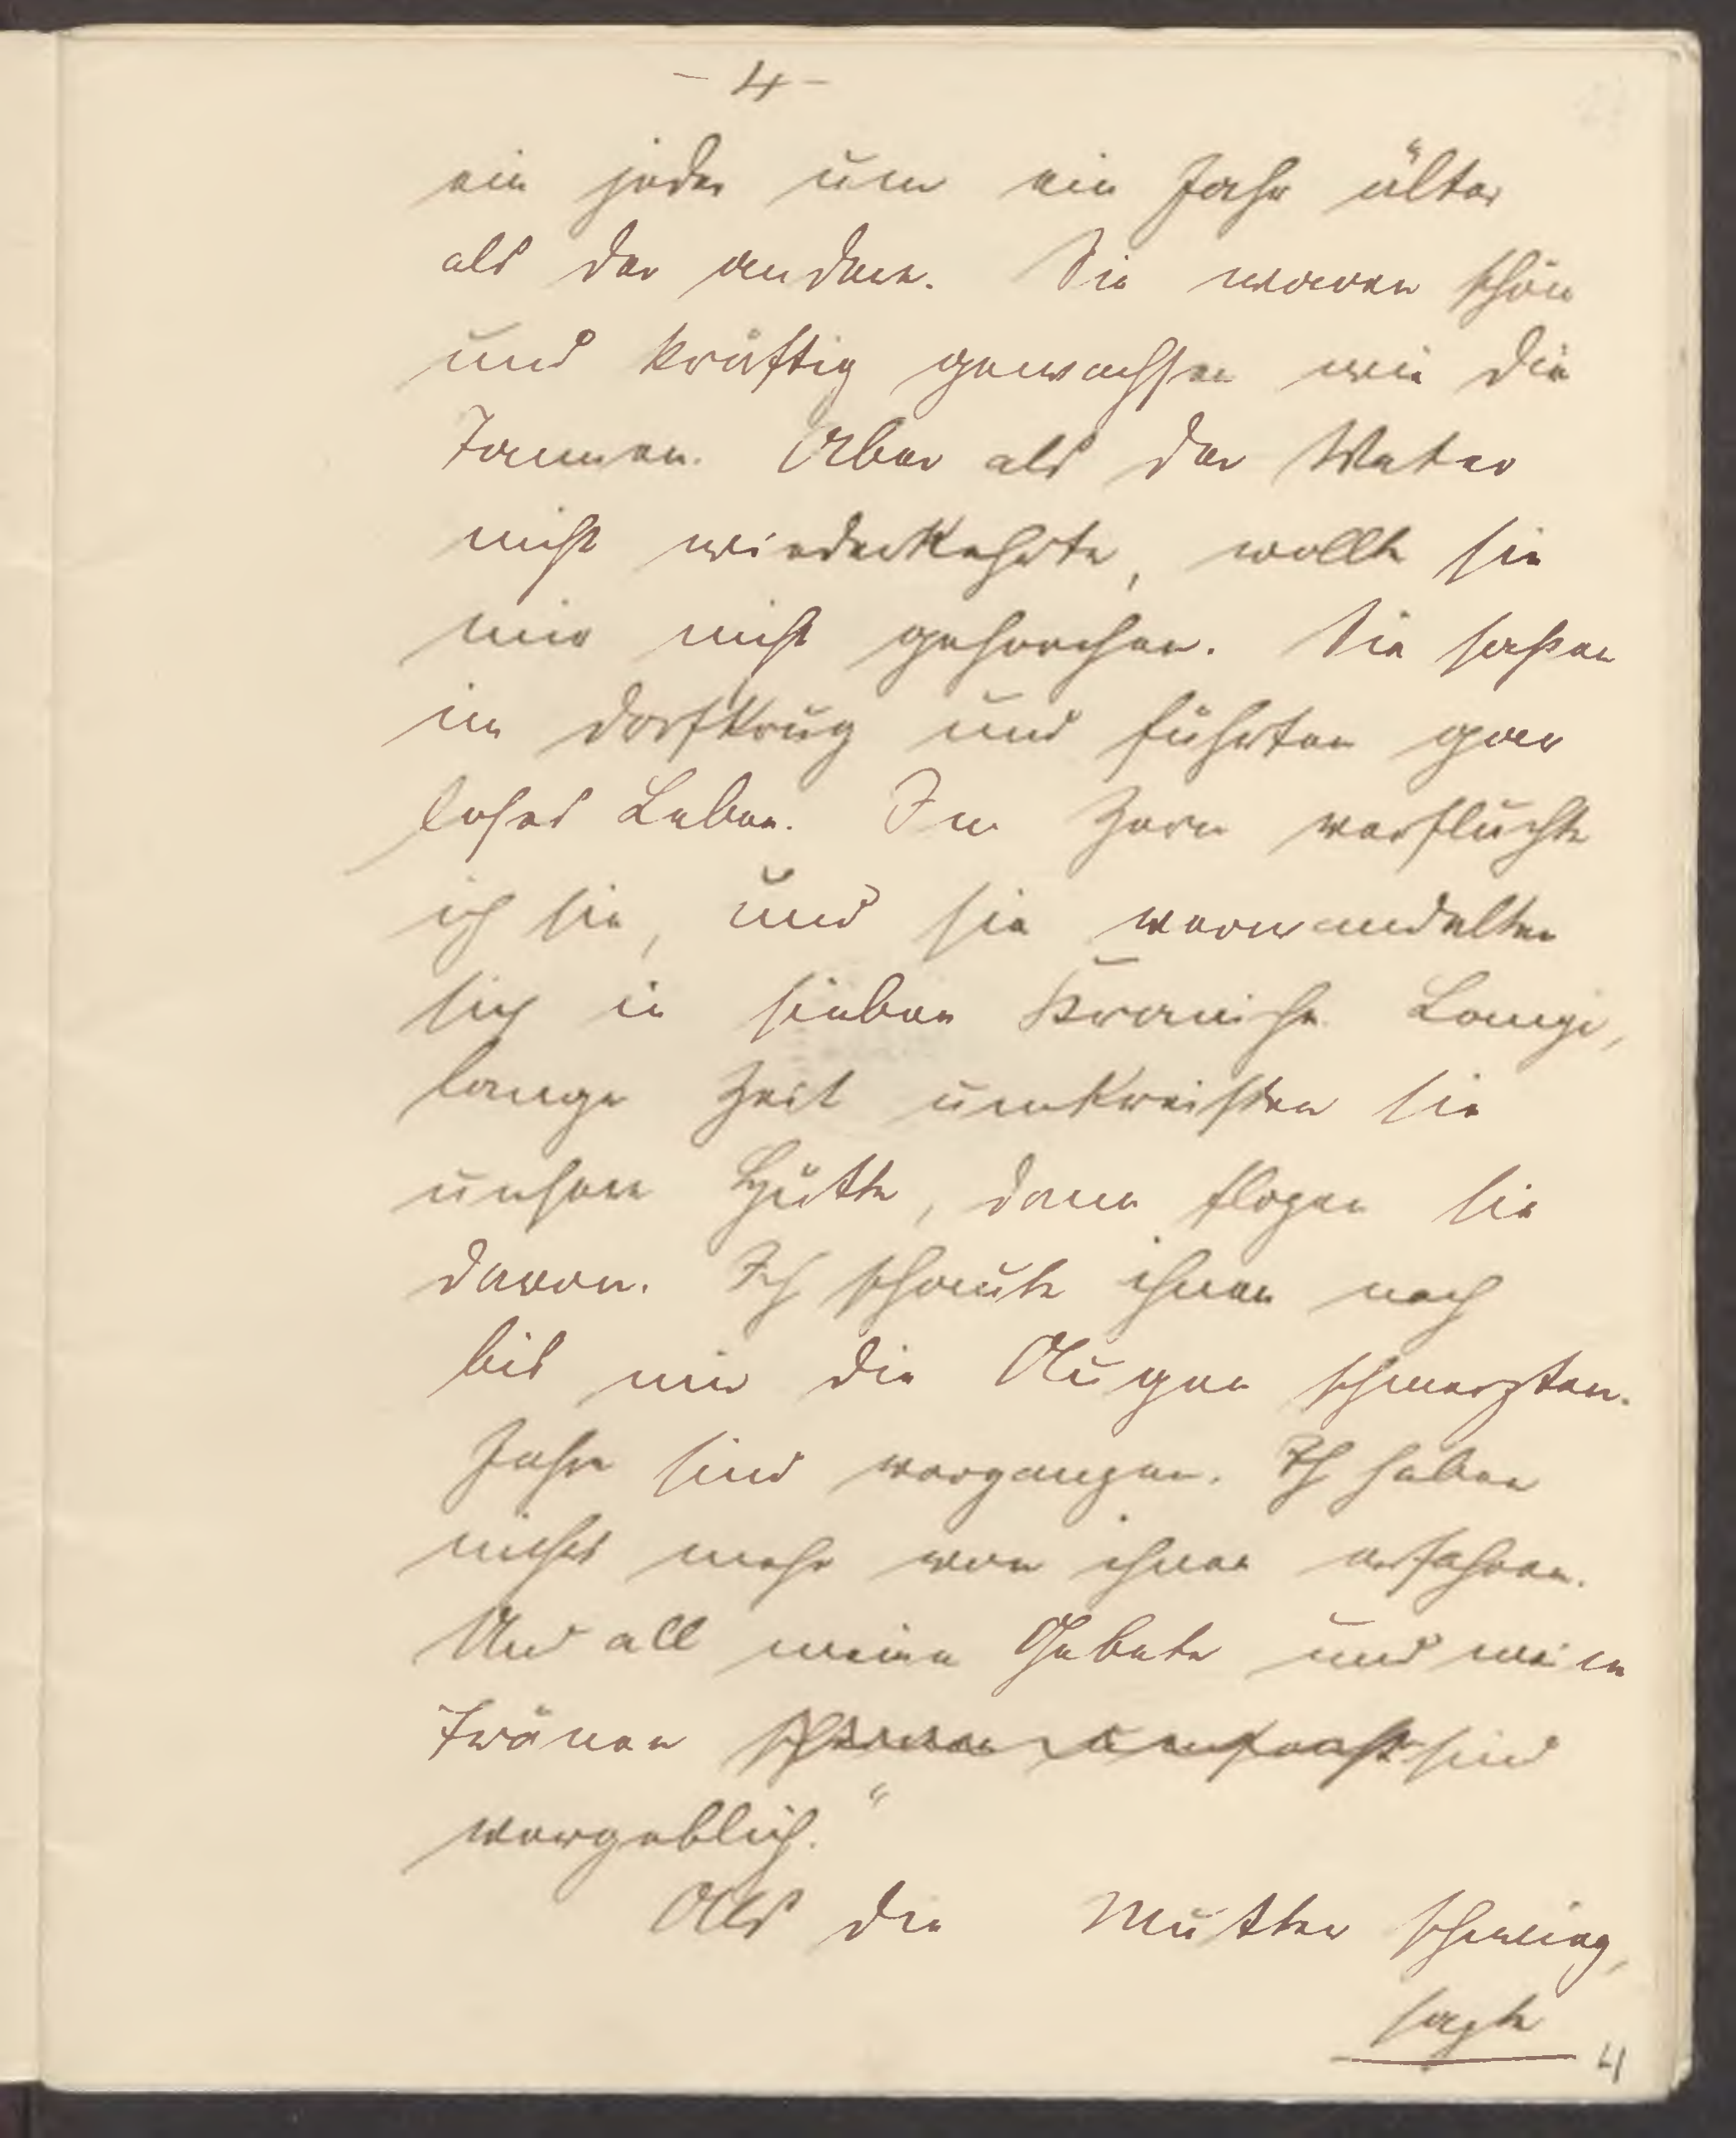 - 4 -
ein jeder um ein Jahr älter
als der andere. Sie waren schön
und kräftig gewachsen wie die
Tannen. Aber als der Vater
nicht wiederkehrte, wollte sie
mir nicht gehorchen. Sie saßen
im Dorfkrug und führten gar
loses Leben. Im Zorn verfluchte
ich sie, und sie verwandelten
sich in sieben Kraniche. Lange,
lange Zeit umkreisten sie
unsere Hütte, dann flogen sie
davon. Ich schaute ihnen nach
bis mir die Augen schmerzten.
Jahre sind vergangen. Ich habe
nichts mehr von ihnen erfahren.
Und all meine Gebete und meine
Tränen sind
vergeblich."
Als die Mutter schwieg,
sagte
4